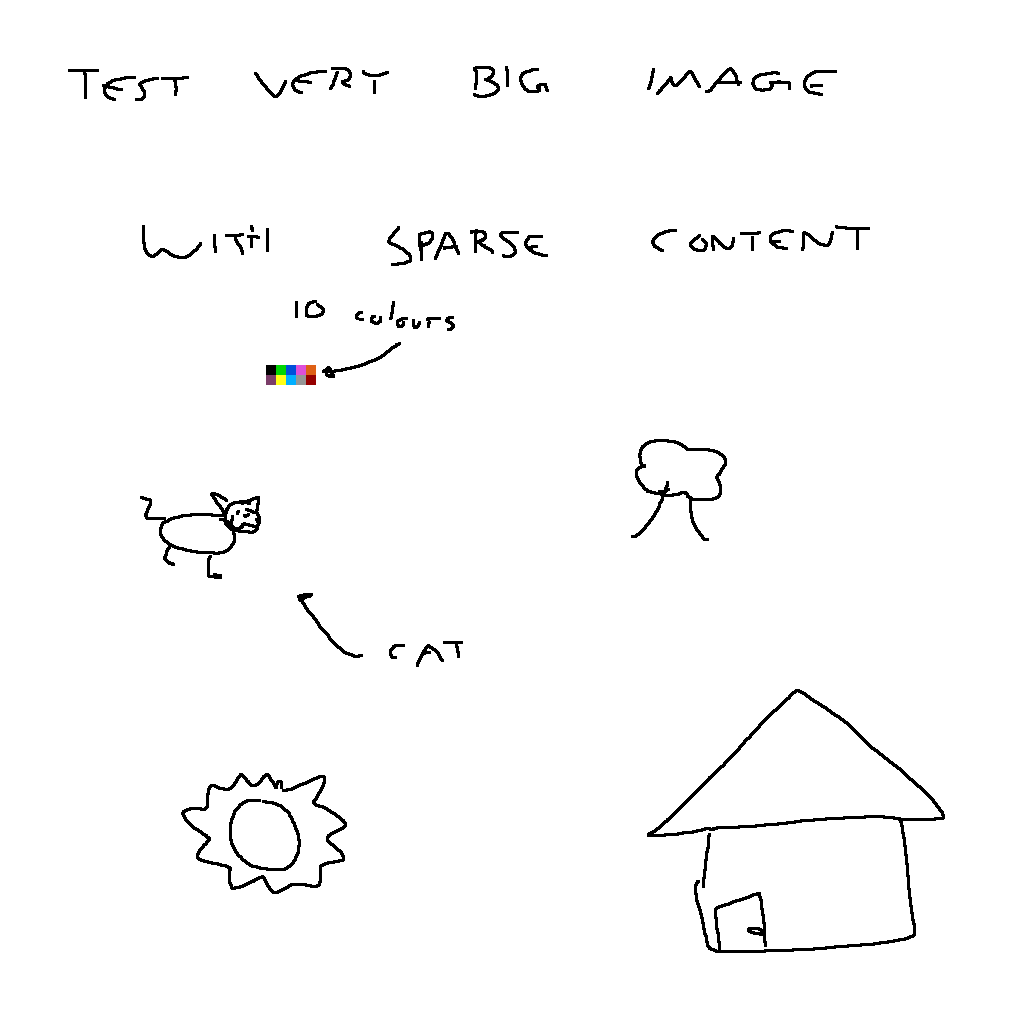 TEST VERY BIG IMAGE
WITH SPARSE CONTENT
10 colours
CAT